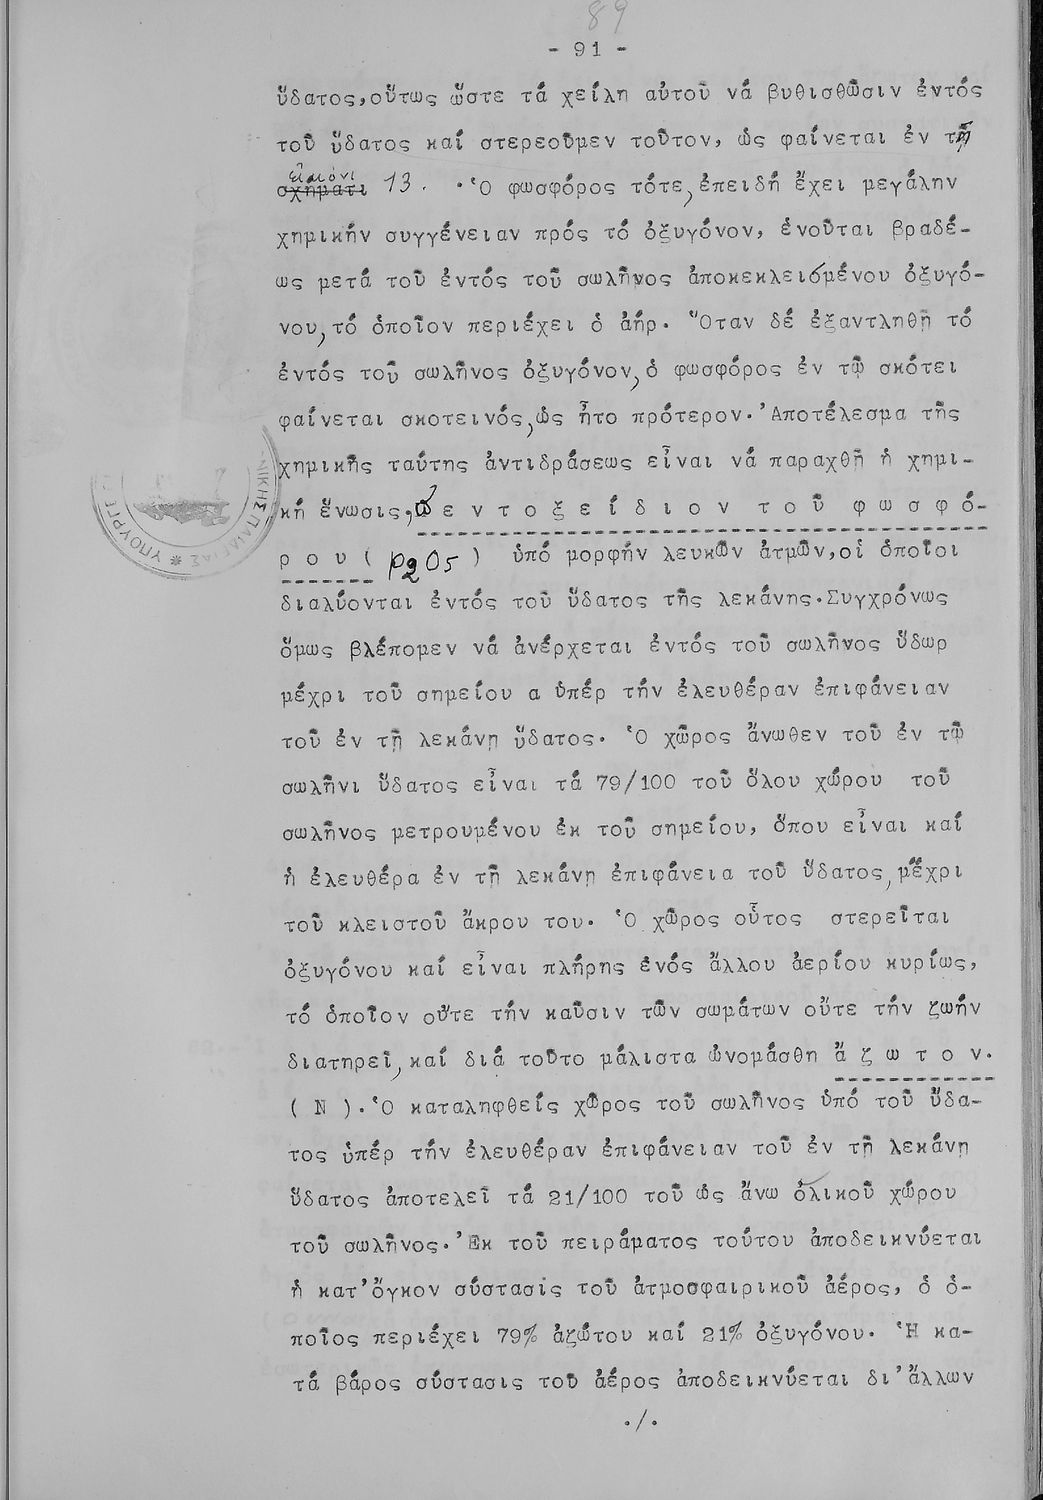 89
- 91 -
ὕδατος, οὕτως ὥστε τά χείλη αὐτοῦ νά βυθισθῶσιν ἐντός
τοῦ ὕδατος καί στερεοῦμεν τοῦτον, ὡς φαίνεται ἐν τῇ
εἰκόνι
σχήματι 13. .Ὁ φωσφόρος τότε, ἐπειδή ἔχει μεγάλην
χημικήν συγγένειαν πρός τό ὀξυγόνον, ἑνοῦται βραδέ-
ως μετά τοῦ ἐντός τοῦ σωλῆνος ἀποκεκλεισμένου ὀξυγό-
νου, τό ὁποῖον περιέχει ὁ ἀήρ. Ὅταν δέ ἐξαντληθῇ τό
ἐντός τοῦ σωλῆνος ὀξυγόνον, ὁ φωσφόρος ἐν τῷ σκότει
φαίνεται σκοτεινός, ὡς ἦτο πρότερον. Ἀποτέλεσμα τῆς
χημικῆς ταύτης ἀντιδράσεως εἶναι νά παραχθῇ ἡ χημι-
κή ἕνωσις, π ε ν τ ο ξ ε ί δ ι ο ν τ ο ῦ φ ω σ φ ό-
ρ ο υ ( P2O5 ) ὑπό μορφήν λευκῶν ἀτμῶν, οἱ ὁποῖοι
διαλύονται ἐντός τοῦ ὕδατος τῆς λεκάνης. Συγχρόνως
ὅμως βλέπομεν νά ἀνέρχεται ἐντός τοῦ σωλῆνος ὕδωρ
μέχρι τοῦ σημείου α ὑπέρ τήν ἐλευθέραν ἐπιφάνειαν
τοῦ ἐν τῇ λεκάνῃ ὕδατος. Ὁ χῶρος ἄνωθεν τοῦ ἐν τῷ
σωλῆνι ὕδατος εἶναι τά 79/100 τοῦ ὅλου χώρου τοῦ
σωλῆνος μετρουμένου ἐκ τοῦ σημείου, ὅπου εἶναι καί
ἡ ἐλευθέρα ἐν τῇ λεκάνῃ ἐπιφάνεια τοῦ ὕδατος, μέχρι
τοῦ κλειστοῦ ἄκρου του. Ὁ χῶρος οὗτος στερεῖται
ὀξυγόνου καί εἶναι πλήρης ἑνός ἄλλου ἀερίου κυρίως,
τό ὁποῖον οὔτε τήν καῦσιν τῶν σωμάτων οὔτε τήν ζωήν
διατηρεῖ, καί διά τοῦτο μάλιστα ὠνομάσθη ἄ ζ ω τ ο ν.
( N ). Ὁ καταληφθείς χῶρος τοῦ σωλῆνος ὑπό τοῦ ὕδα-
τος ὑπέρ τήν ἐλευθέραν ἐπιφάνειαν τοῦ ἐν τῇ λεκάνῃ
ὕδατος ἀποτελεῖ τά 21/100 τοῦ ὡς ἄνω ὁλικοῦ χώρου
τοῦ σωλῆνος. Ἐκ τοῦ πειράματος τούτου ἀποδεικνύεται
ἡ κατ' ὄγκον σύστασις τοῦ ἀτμοσφαιρικοῦ ἀέρος, ὁ ὁ-
ποῖος περιέχει 79% ἀζώτου καί 21% ὀξυγόνου. Ἡ κα-
τά βάρος σύστασις τοῦ ἀέρος ἀποδεικνύεται δι' ἄλλων
./.